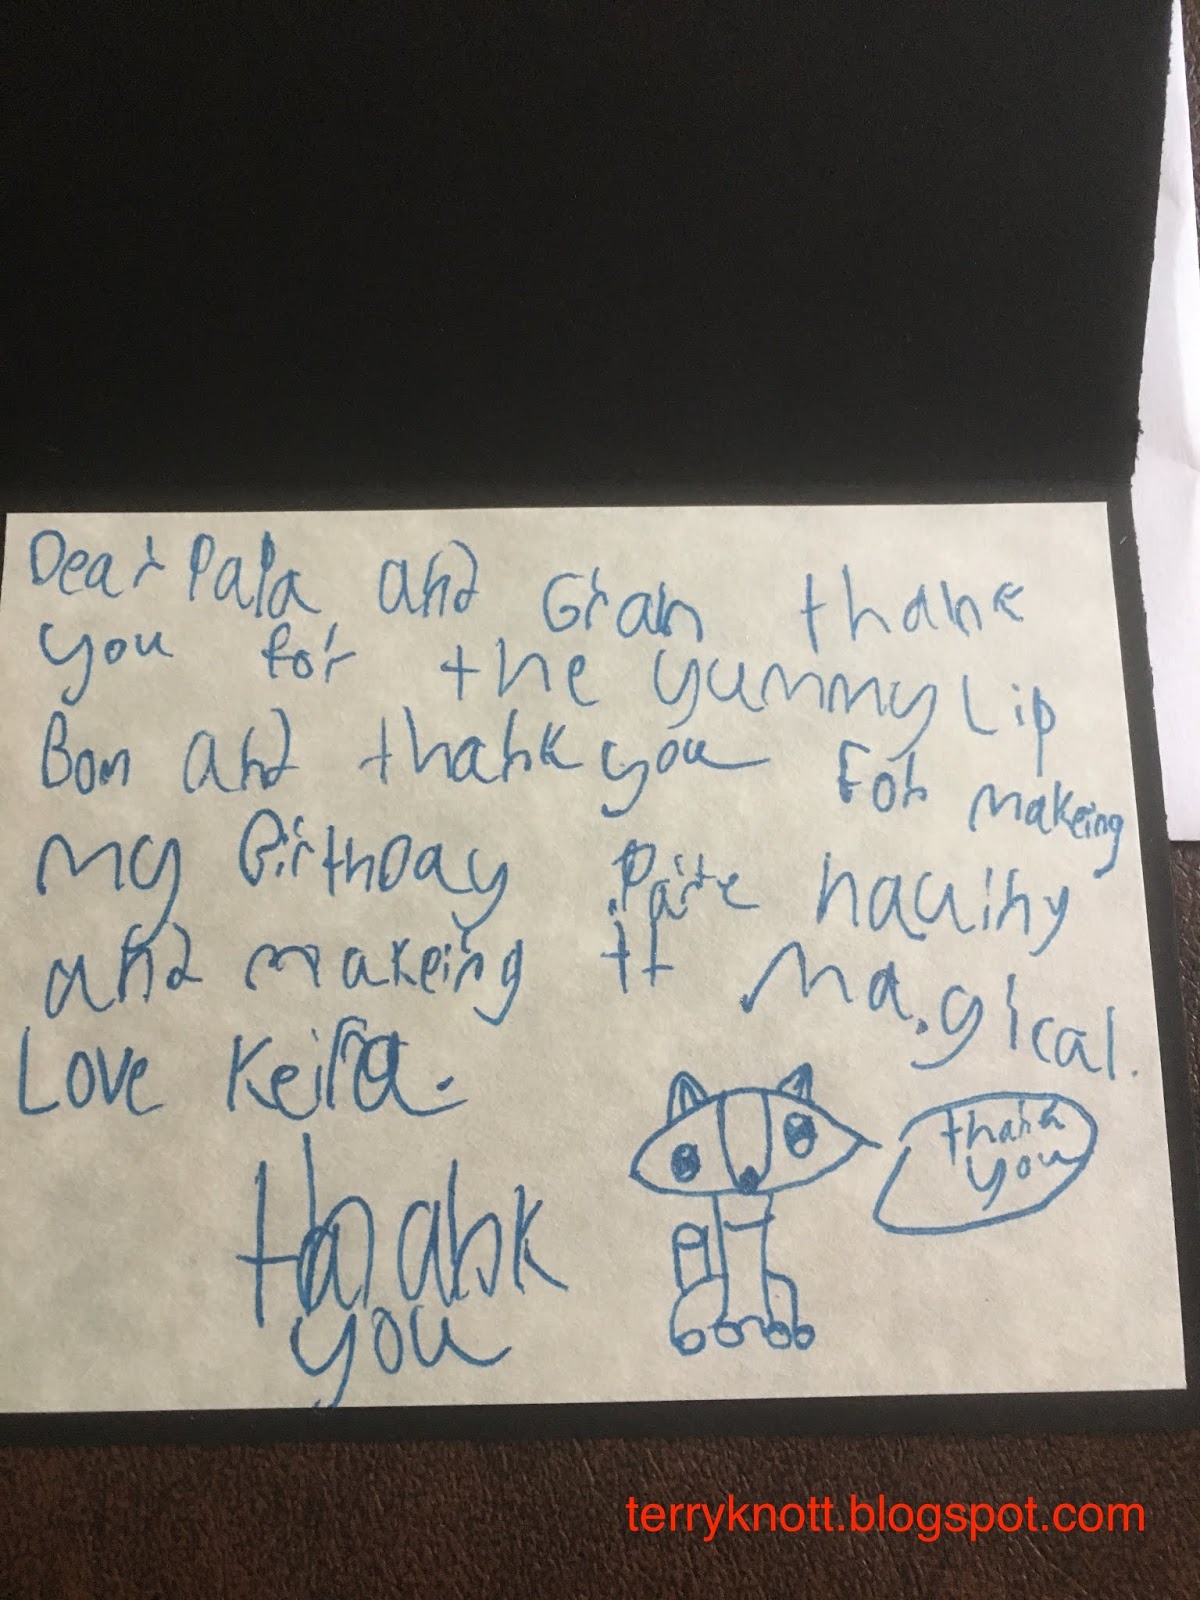 Dear Papa and Gran thank
you for the yummy Lip
Bom and thank you for makeing
my Birthday Parte
and makeing it Magical.
Love Keira.
thank
you
Thank
you
terryknott.blogspot.com